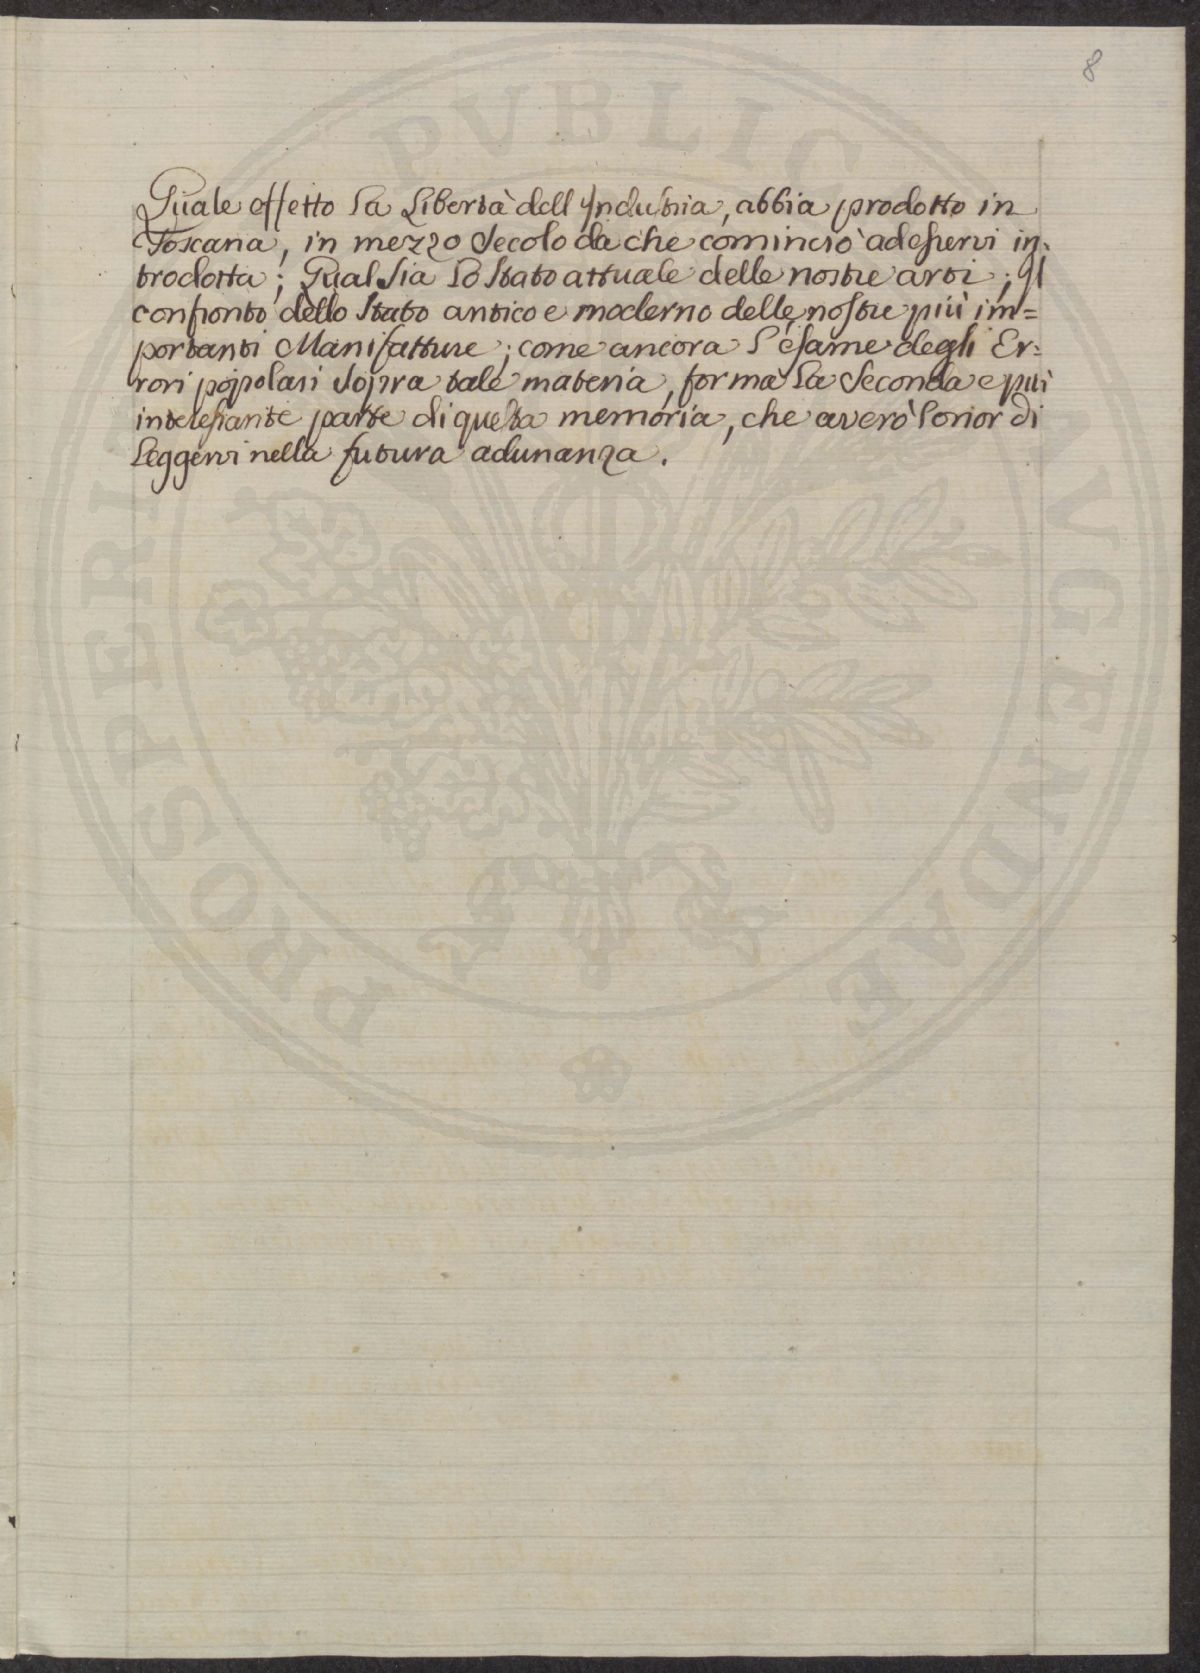 8
Quale effetto la Libertà dell'Industria, abbia prodotto in
Toscana, in mezzo Secolo da che cominciò ad esservi in-
trodotta; Qual sia lo stato attuale delle nostre arti; Il
confronto dello Stato antico e moderno delle nostre più im=
portanti Manifatture; come ancora l'esame degli Er=
rori popolari sopra tale materia, forma la Seconda e più
interessante parte di questa memoria, che averò l'onor di
leggervi nella futura adunanza.
PROSPERITATI PUBLICAE AUGENDAE